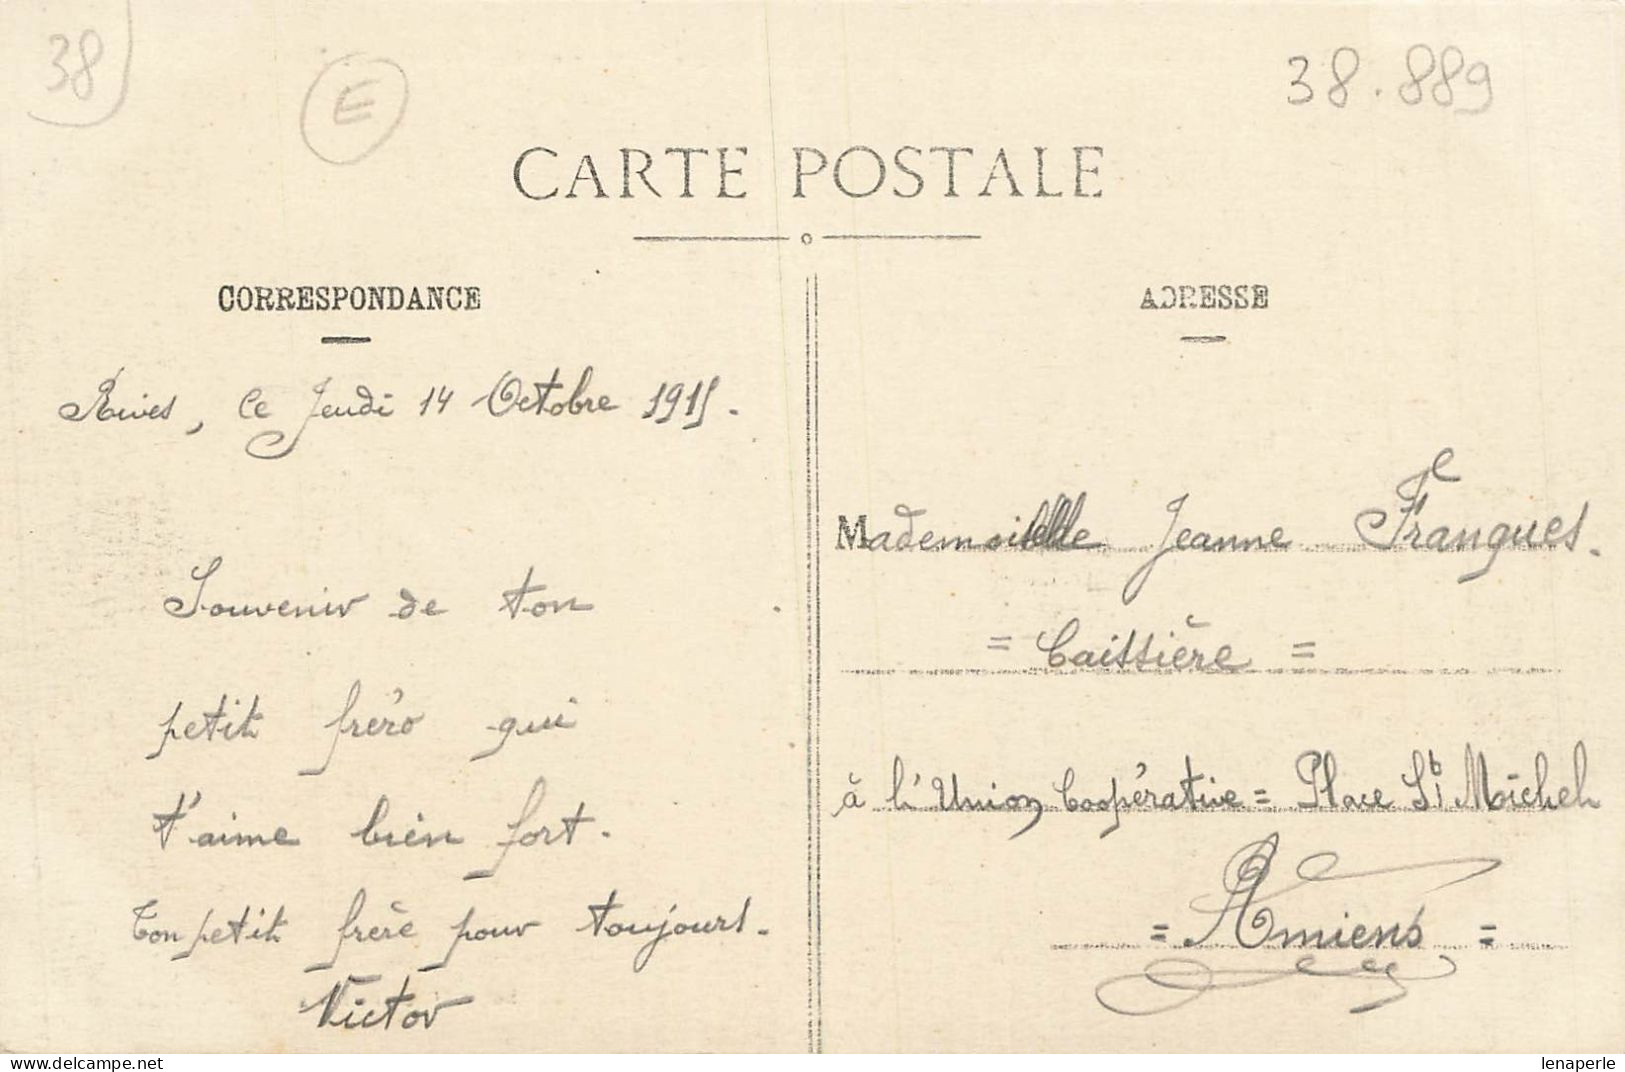 38
E
38.889
CARTE POSTALE
CORRESPONDANCE
Rives, ce Jeudi 14 Octobre 1915.
Souvenir de ton
petit frèro qui
t'aime bien fort.
Ton petit frère pour toujours.
Victor
ADRESSE
Mademoiselle Jeanne Frangues.
= Caissière =
à l'Union Coopérative = Place St Michel
= Amiens =
lenaperle